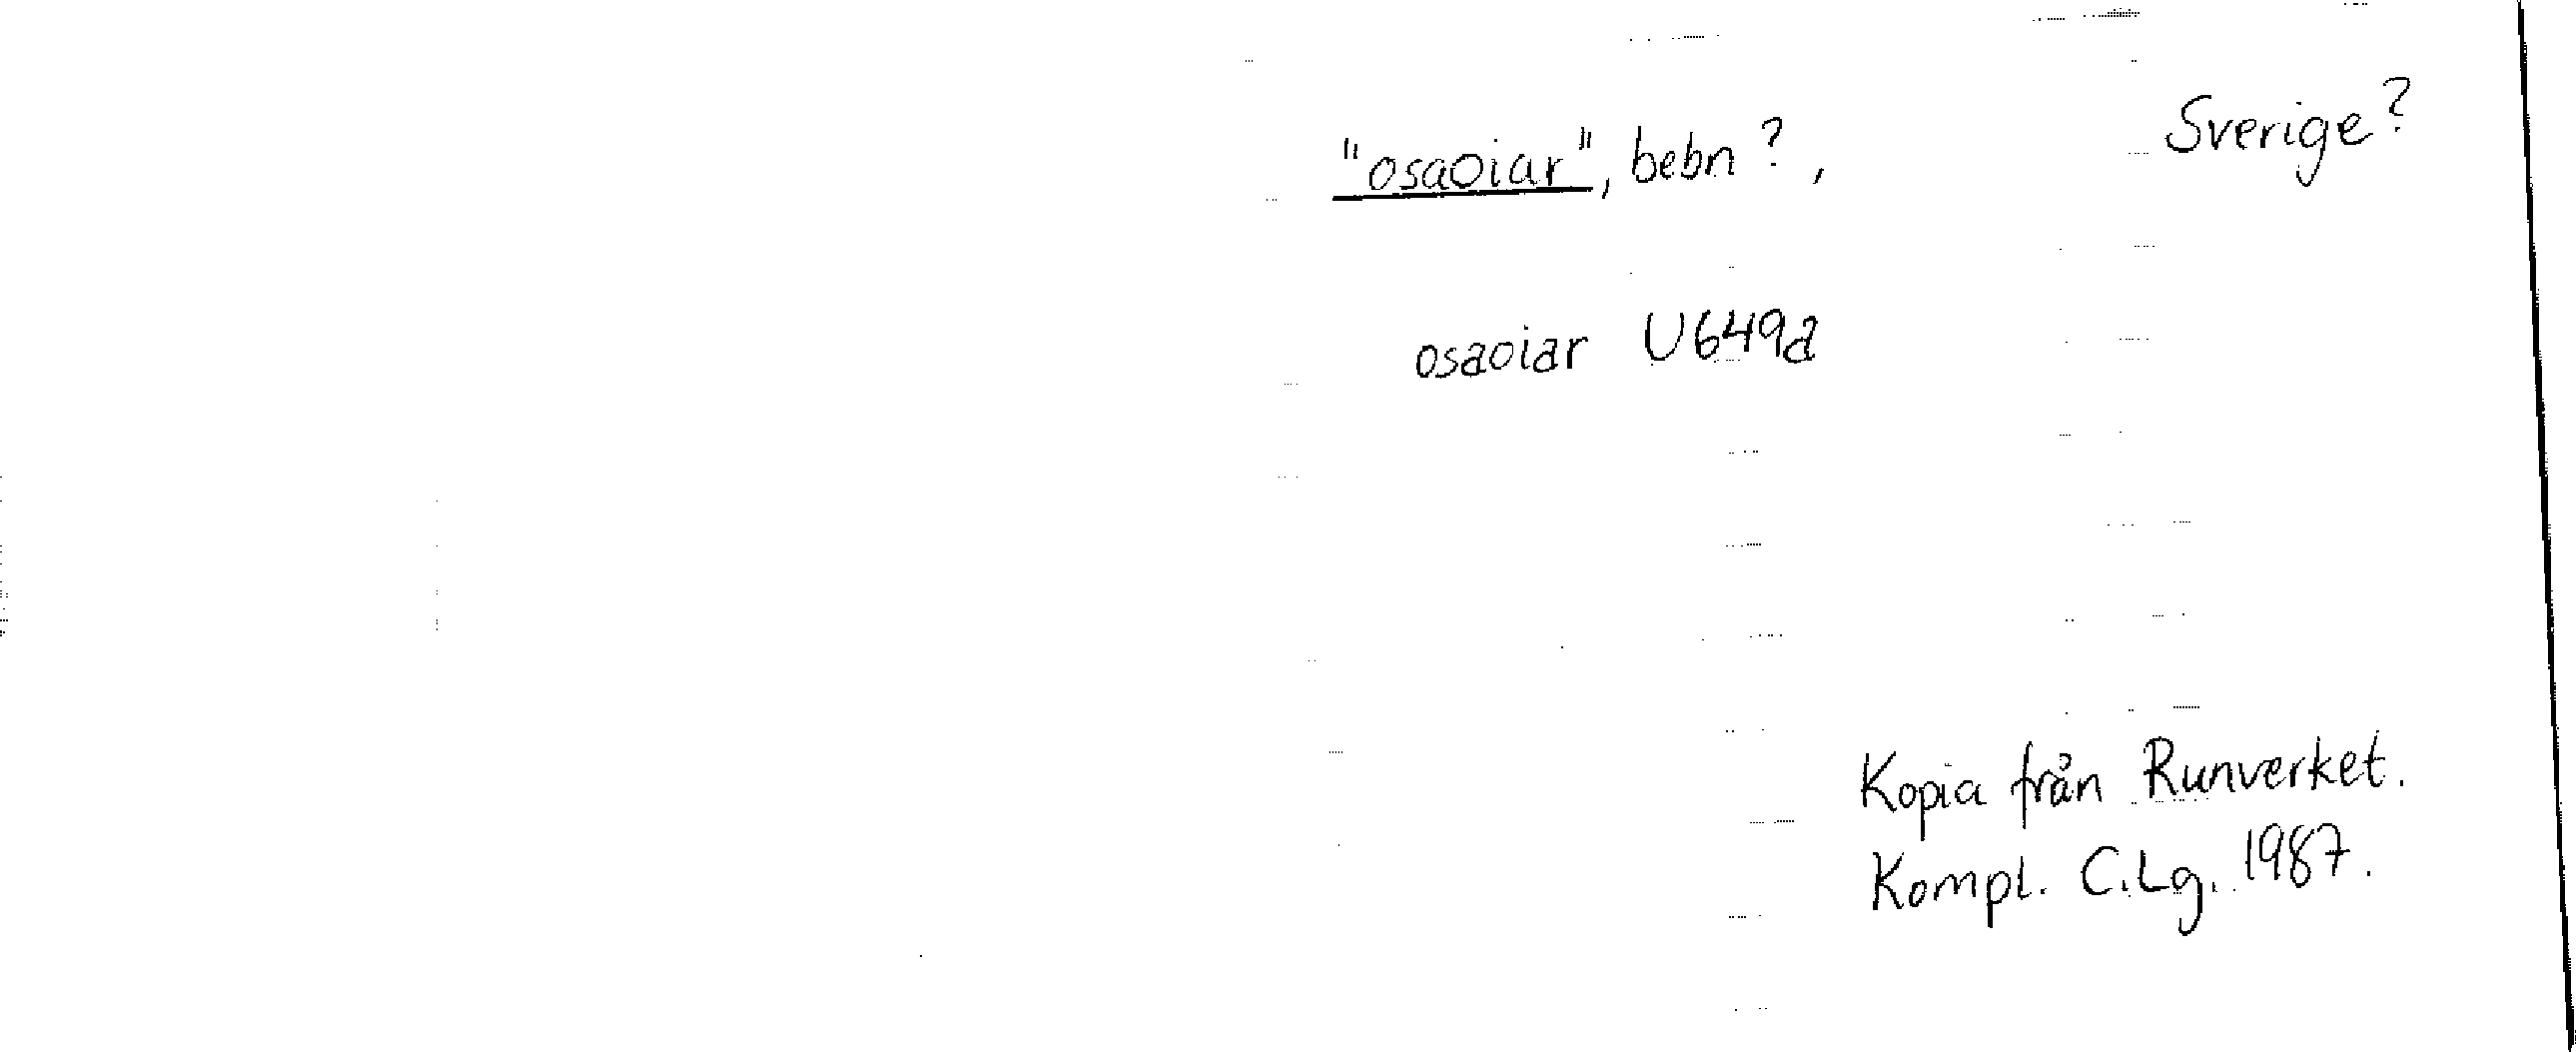 "osaoiar", bebn?, Sverige?
osaoiar U649a
Kopia från Runverket.
Kompl. C.Lg. 1987.